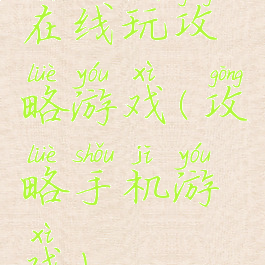 在线玩攻
lüè yóu xì gōng
略游戏(攻
lüè shǒu jī yóu
略手机游
xì
戏)